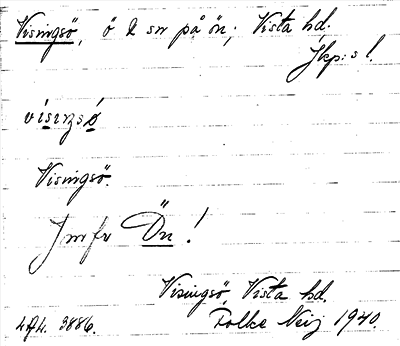 Visingsö, ö & sn på ön; Vista hd.
Jkp:s l.
visiŋsö
Visingsö.
Jmfr Ön!
Visingsö, Vista hd.
4A4. 3886. Folke Neij 1940.